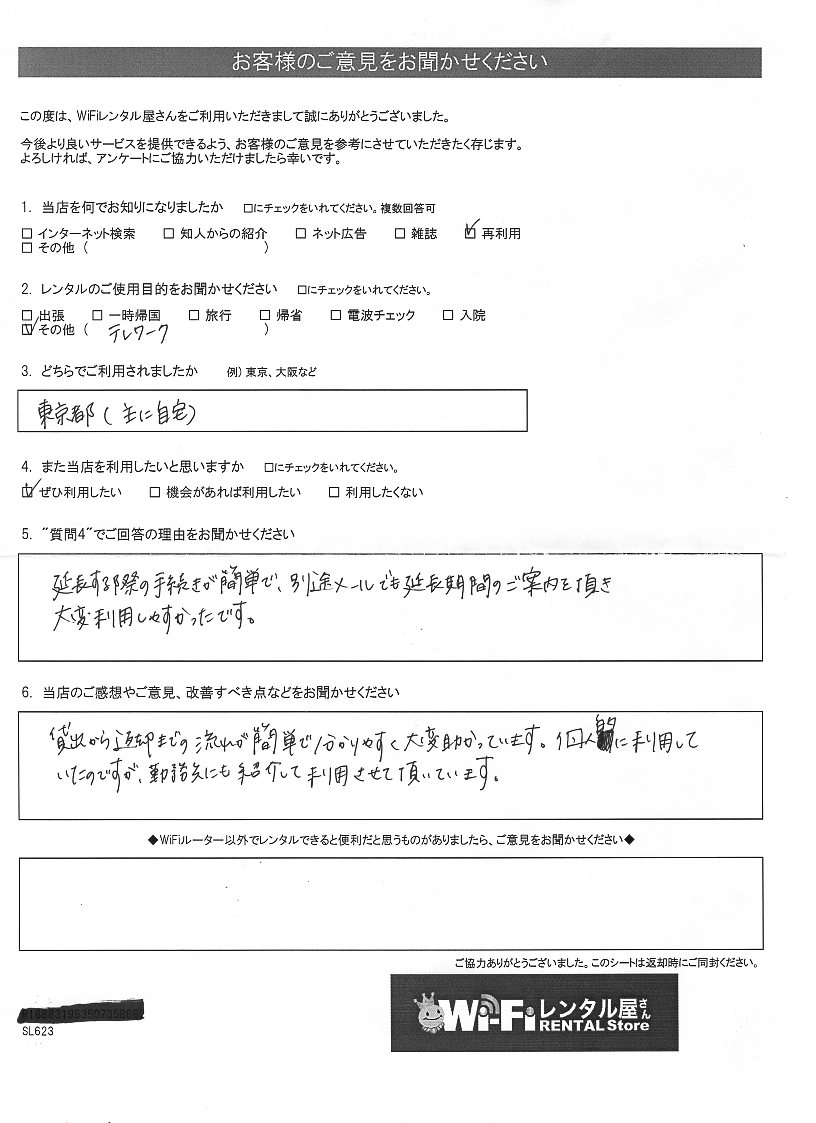 お客様のご意見をお聞かせください
この度は、WiFiレンタル屋さんをご利用いただきまして誠にありがとうございました。
今後より良いサービスを提供できるよう、お客様のご意見を参考にさせていただきたく存じます。
よろしければ、アンケートにご協力いただけましたら幸いです。
1. 当店を何でお知りになりましたか □にチェックをいれてください。複数回答可
□ インターネット検索 □ 知人からの紹介 □ ネット広告 □ 雑誌 ☑ 再利用
□ その他 ( )
2. レンタルのご使用目的をお聞かせください □にチェックをいれてください。
□ 出張 □ 一時帰国 □ 旅行 □ 帰省 □ 電波チェック □ 入院
☑ その他 ( テレワーク )
3. どちらでご利用されましたか 例) 東京、大阪など
東京都 (主に自宅)
4. また当店を利用したいと思いますか □にチェックをいれてください。
☑ ぜひ利用したい □ 機会があれば利用したい □ 利用したくない
5. "質問4"でご回答の理由をお聞かせください
延長する際の手続きが簡単で、別途メールでも延長期間のご案内を頂き
大変利用しやすかったです。
6. 当店のご感想やご意見、改善すべき点などをお聞かせください
貸出から返却までの流れが簡単で分かりやすく大変助かっています。個人的に利用して
いたのですが、勤務先にも紹介して利用させて頂いています。
◆WiFiルーター以外でレンタルできると便利だと思うものがありましたら、ご意見をお聞かせください◆
ご協力ありがとうございました。このシートは返却時にご同封ください。
SL623
Wi-Fiレンタル屋さん
RENTAL Store